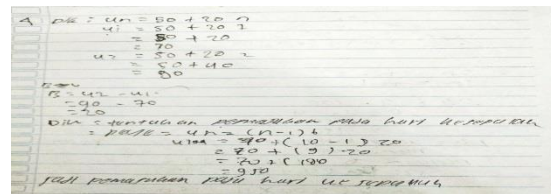 4 Dik : un = 50 + 20 n
u1 = 50 + 20 1
= 50 + 20
= 70
u2 = 50 + 20 2
= 50 + 40
= 90
B = u2 - u1
= 90 - 70
= 20
Dit : tentukan pada hari kesepuluh
= un = (n-1) b
+ (10 - 1) 20
= 70 + (9) 20
= 70 + ( 180
= 950
Jadi pemasukan pada hari ke sepuluh